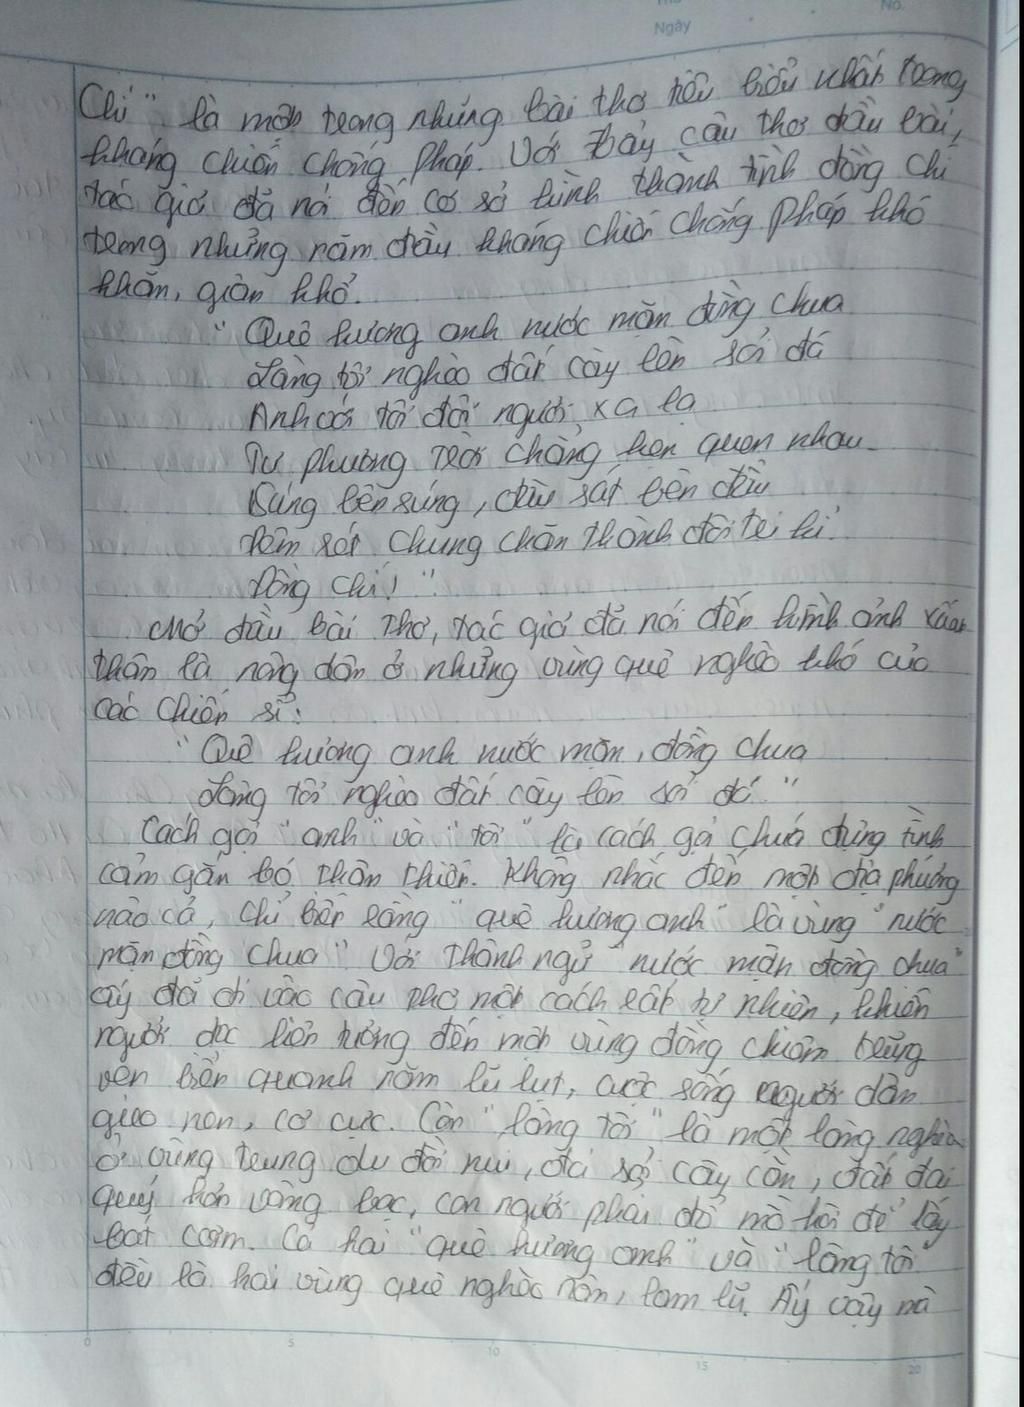 Ngày
No.
Chí" là một trong những bài thơ tiêu biểu nhất trong
kháng chiến chống Pháp. Với bảy câu thơ đầu bài,
tác giả đã nói đến cơ sở hình thành tình đồng chí
trong những năm đầu kháng chiến chống Pháp khó
khăn, gian khổ.
"Quê hương anh nước mặn đồng chua
Làng tôi nghèo đất cày lên sỏi đá
Anh với tôi đôi người xa lạ
Tự phương trời chẳng hẹn quen nhau
Súng bên súng, đầu sát bên đầu
Đêm rét chung chăn thành đôi tri kỉ.
Đồng chí!"
Mở đầu bài thơ, tác giả đã nói đến hình ảnh xuất
thân là nông dân ở những vùng quê nghèo khó của
các chiến sĩ:
"Quê hương anh nước mặn, đồng chua
Làng tôi nghèo đất cày lên sỏi đá"
Cách gọi "anh" và "tôi" là cách gọi chứa đựng tình
cảm gắn bó thân thiết. Không nhắc đến một địa phương
nào cả, chỉ biết rằng "quê hương anh" là vùng "nước
mặn đồng chua" Với thành ngữ "nước mặn đồng chua"
ấy đã đi vào câu thơ một cách rất tự nhiên, khiến
người đọc liên tưởng đến một vùng đồng chiêm trũng
ven biển quanh năm lũ lụt, cuộc sống người dân
gieo neo, cơ cực. Còn "làng tôi" là một làng nghèo
ở vùng trung du đồi núi, đá sỏi cây cằn, đất đai
quý hơn vàng bạc, con người phải đổ mồ hôi để lấy
bát cơm. Cả hai "quê hương anh" và "làng tôi"
đều là hai vùng quê nghèo nàn, lam lũ. Ấy vậy mà
0 5 10 15 20